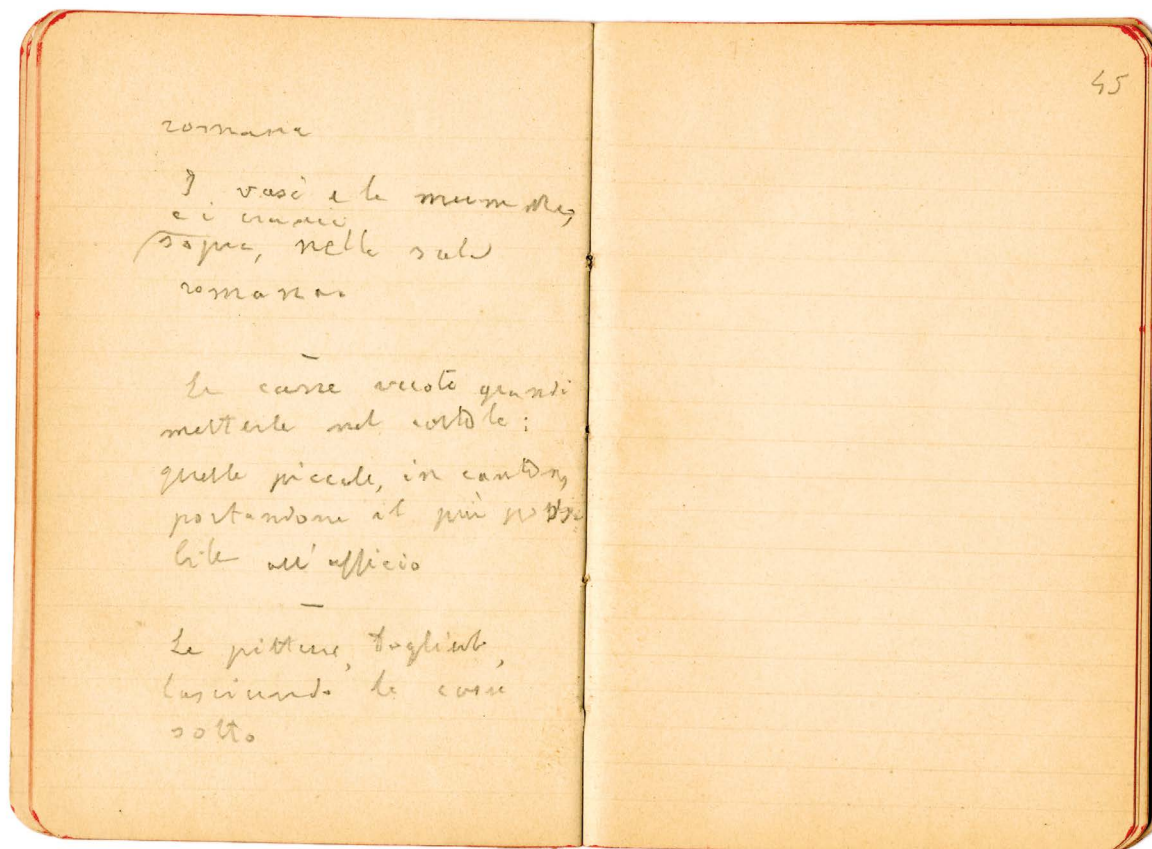 romana
I vasi e le mummie,
e i crani
sopra, nella sala
romana.
Le casse vuote grandi
metterle nel cortile;
quelle piccole, in cantina,
portandone il più possi
bile all'ufficio
Le pitture, toglierle,
lasciando le casse
sotto
45